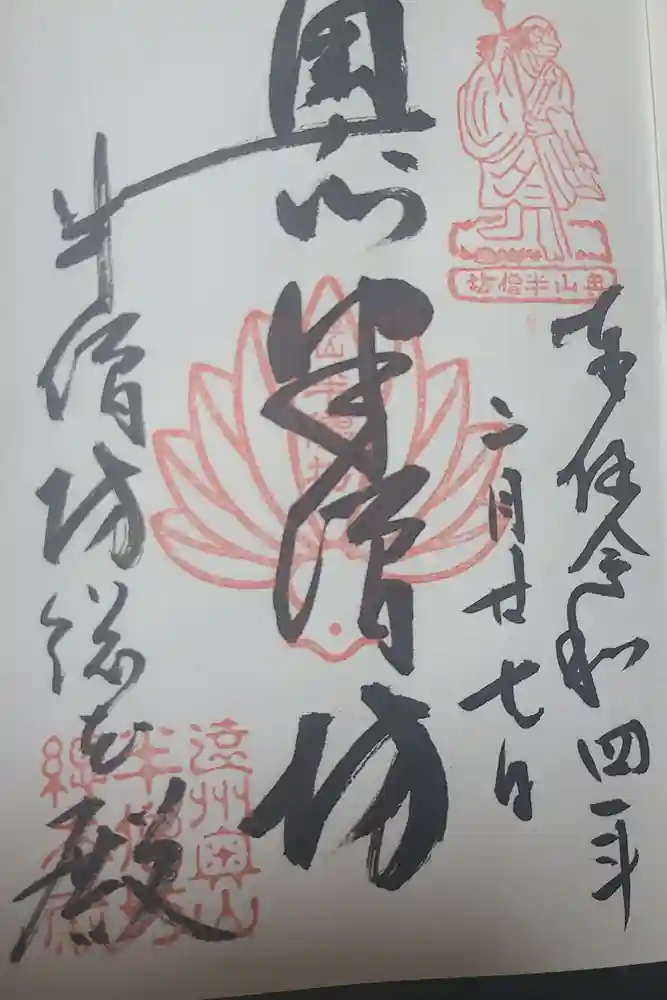 奉拝令和四年
二月廿七日
奥山半僧坊
奥山半僧坊
奥山半僧坊
半僧坊総本殿
遠州奥山
半僧坊
総本殿